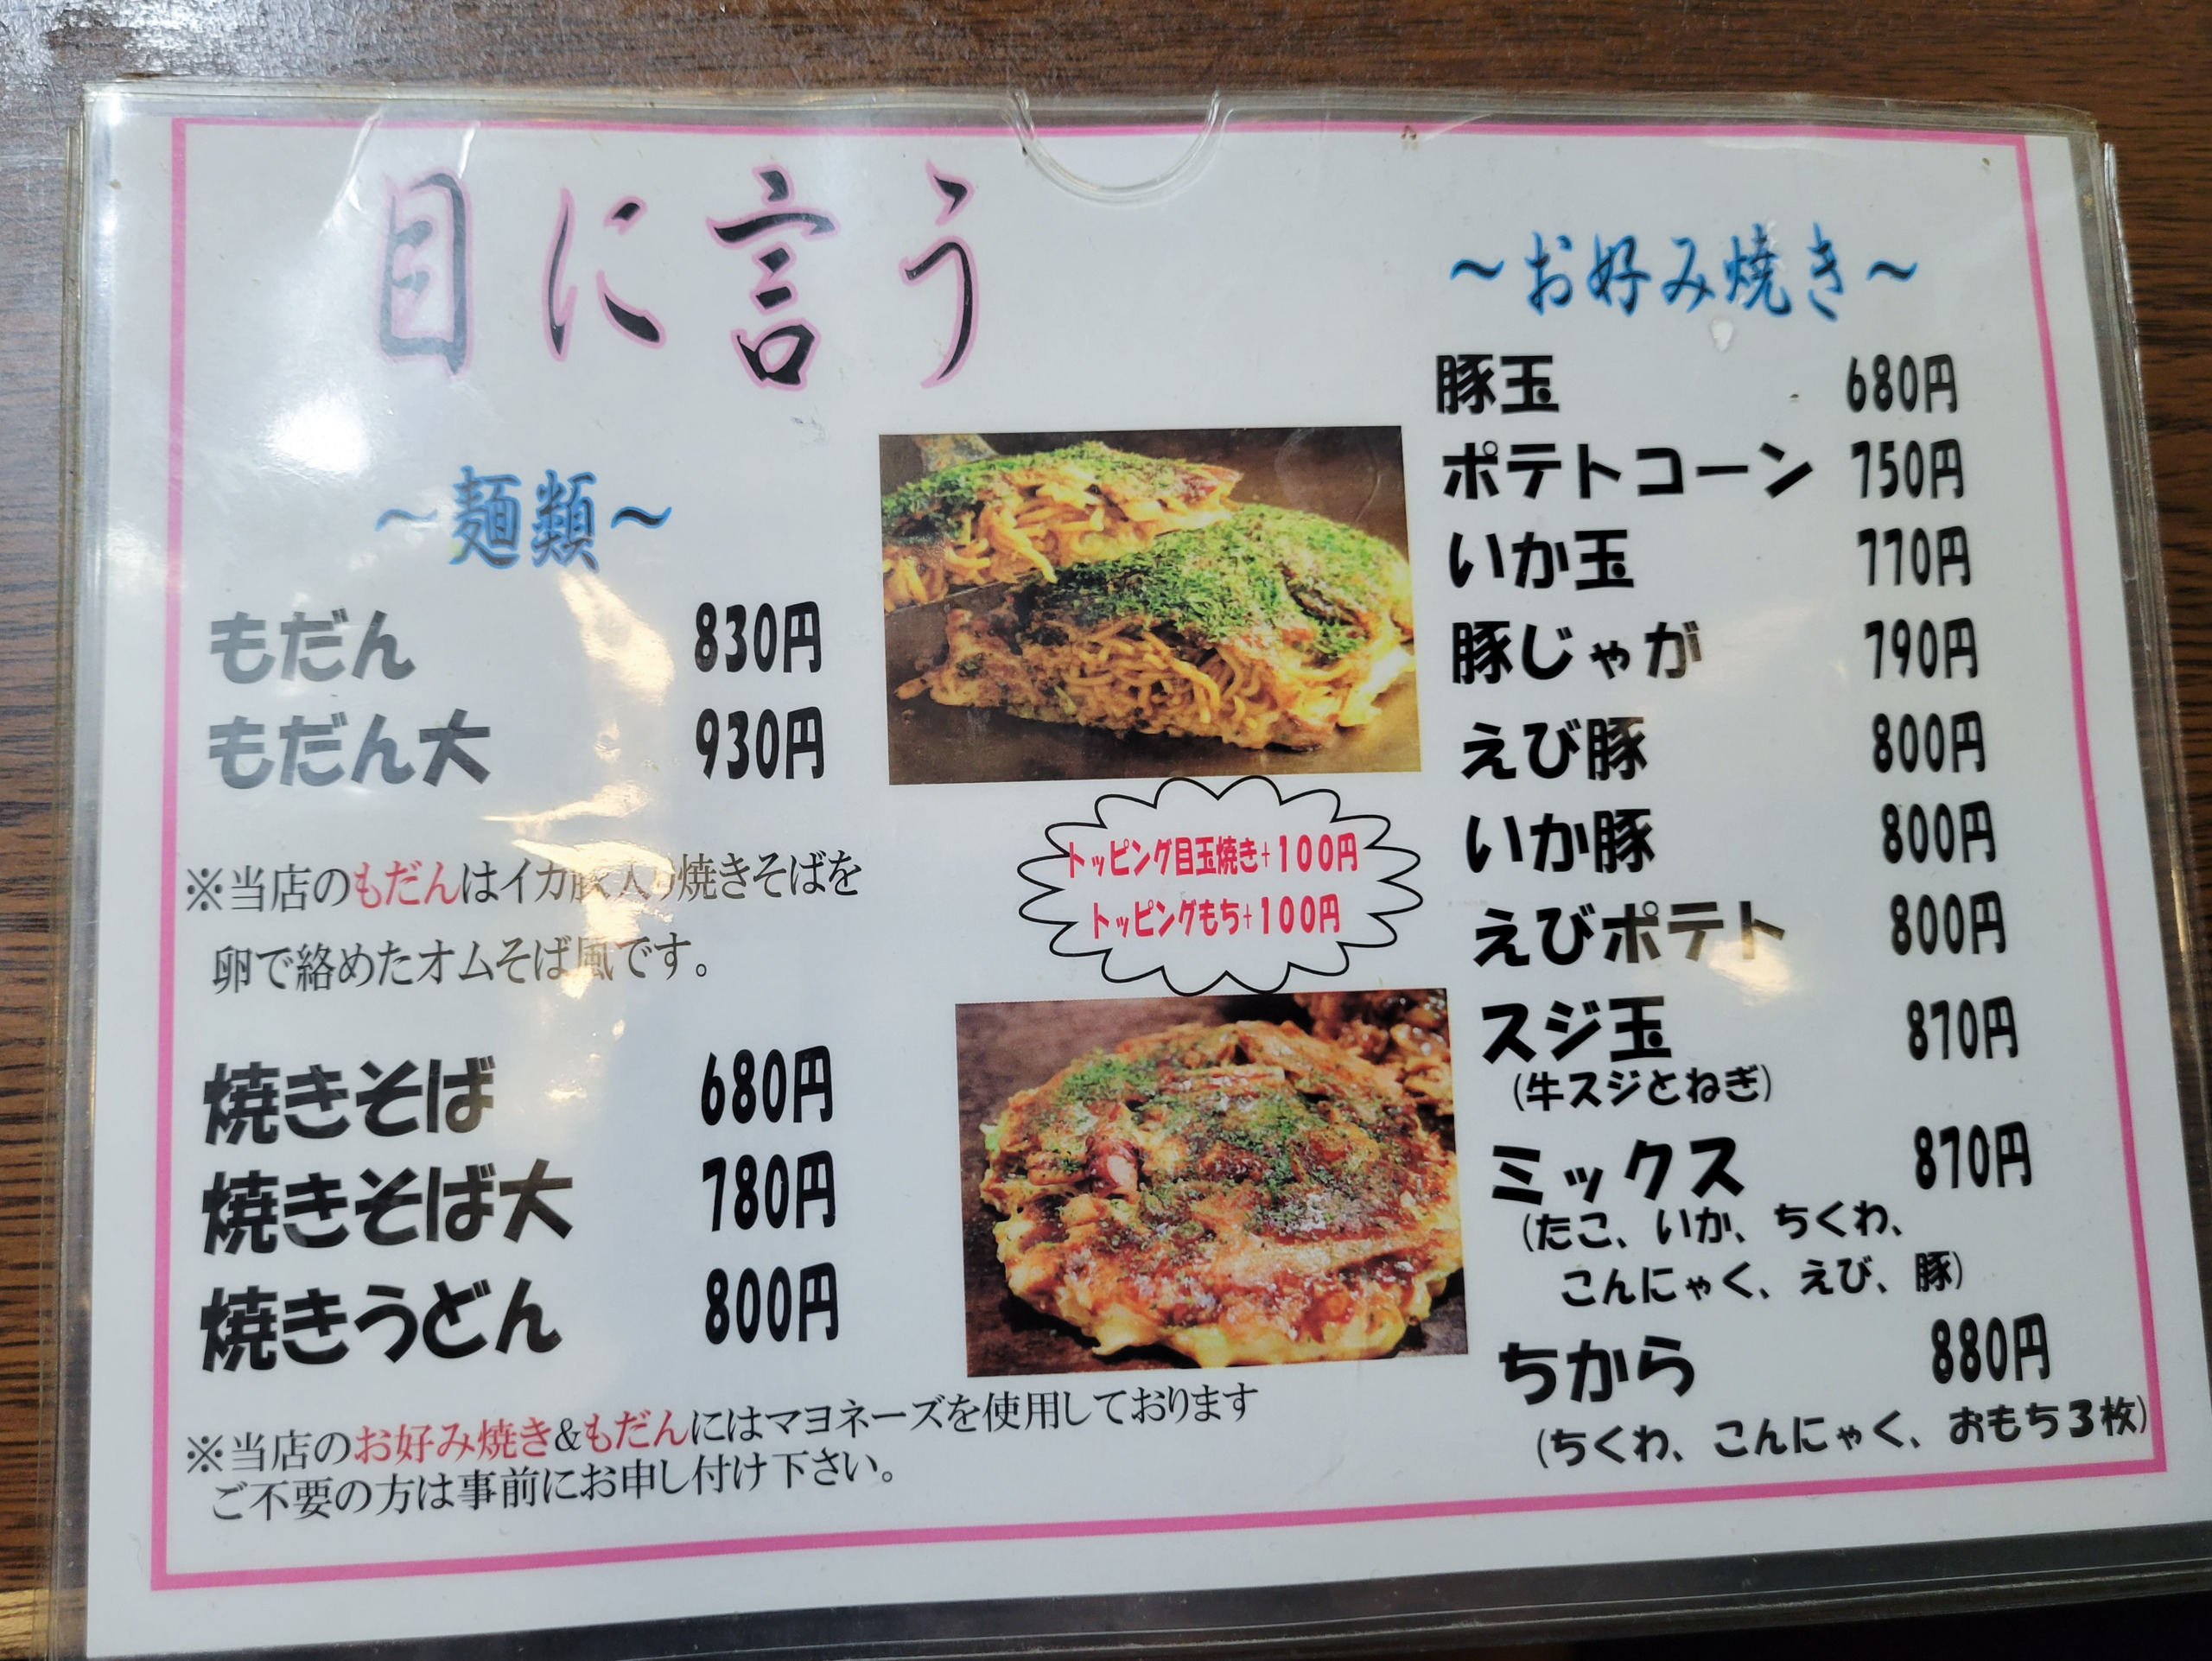 目に言う
～麺類～
もだん 830円
もだん大 930円
※当店のもだんはイカ豚入り焼きそばを
卵で絡めたオムそば風です。
焼きそば 680円
焼きそば大 780円
焼きうどん 800円
※当店のお好み焼き&もだんにはマヨネーズを使用しております
ご不要の方は事前にお申し付け下さい。
トッピング目玉焼き+100円
トッピングもち+100円
～お好み焼き～
豚玉 680円
ポテトコーン 750円
いか玉 770円
豚じゃが 790円
えび豚 800円
いか豚 800円
えびポテト 800円
スジ玉 870円
(牛スジとねぎ)
ミックス 870円
(たこ、いか、ちくわ、
こんにゃく、えび、豚)
ちから 880円
(ちくわ、こんにゃく、おもち3枚)